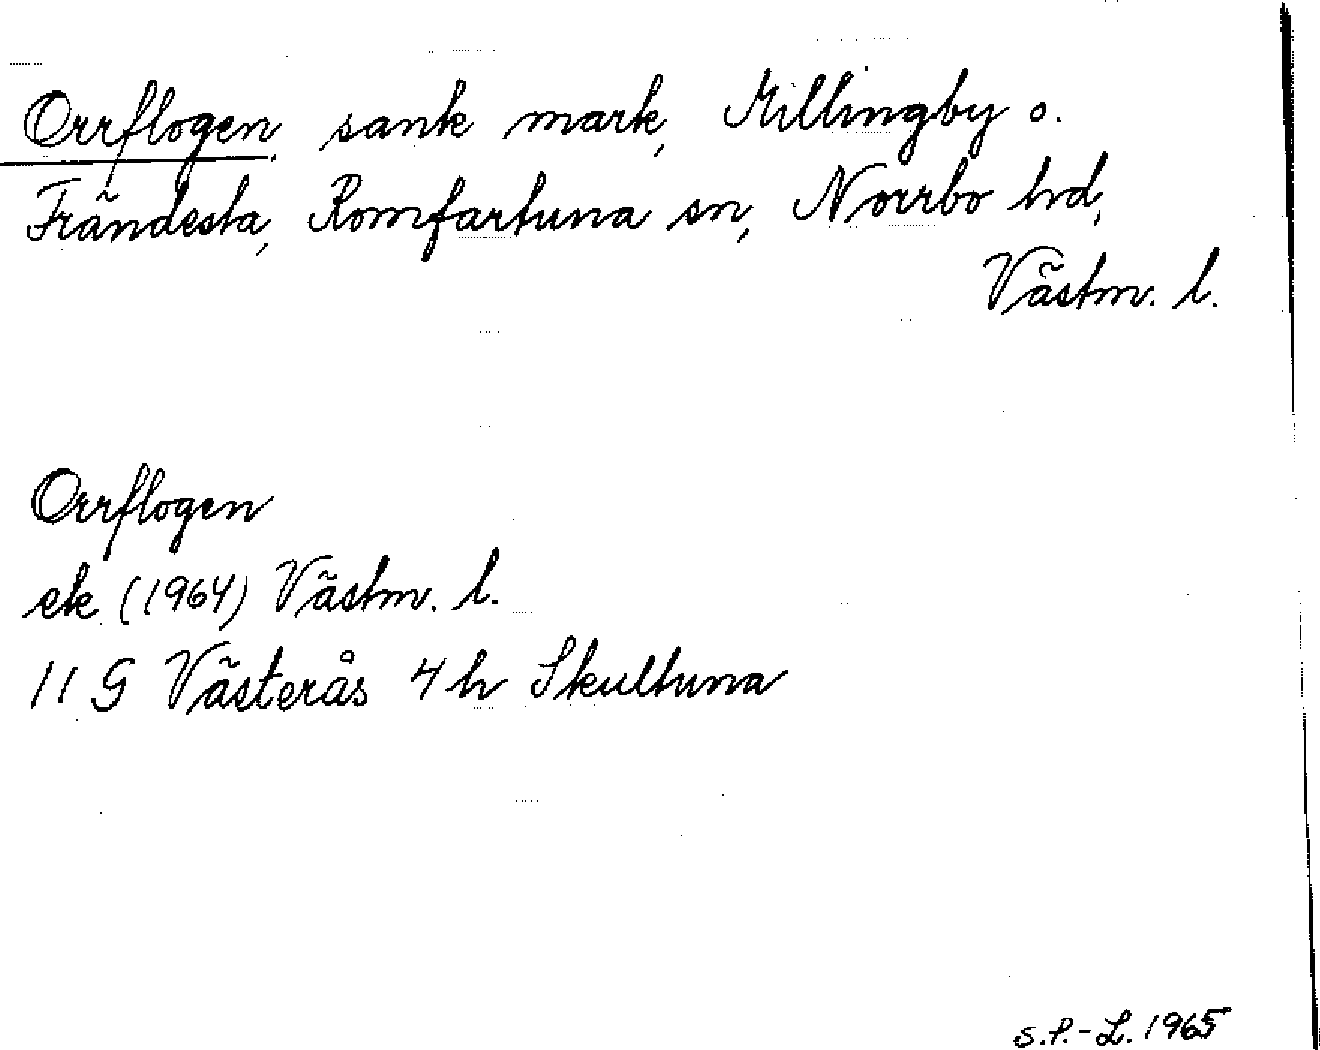 Orrflogen, sank mark, Millingby o.
Frändesta, Romfartuna sn, Norrbo hd,
Västm. l.
Orrflogen
ek (1964) Västm. l.
11 G Västerås 4 h Skultuna
S.P.-L. 1965